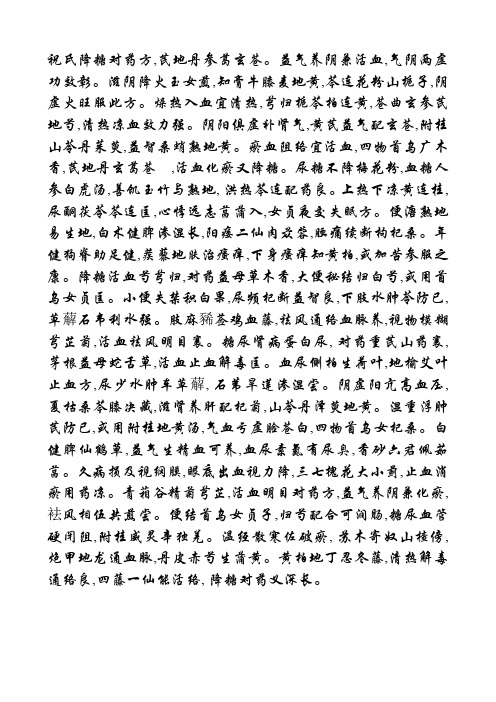 祝氏降糖对药方,芪地丹参葛玄苍。益气养阴兼活血,气阴两虚
功效彰。滋阴降火玉女煎,知膏牛膝麦地黄,芩连花粉山栀子,阴
虚火旺服此方。燥热入血宜清热,芎归栀芩柏连黄,苍曲玄参芪
地芍,清热凉血效力强。阴阳俱虚补肾气,黄芪益气配玄苍,附桂
山苓丹茱萸,益智桑螵熟地黄。瘀血阻络宜活血,四物首乌广木
香,芪地丹玄葛苍 ,活血化瘀又降糖。尿糖不降梅花粉,血糖人
参白虎汤,善饥玉竹与熟地,洪热芩连配药良。上热下凉黄连桂,
尿酮茯苓芩连医,心悸远志菖蒲入,女贞夜交失眠方。便溏熟地
易生地,白术健脾渗湿长,阳痿二仙肉苁蓉,腰痛续断枸杞桑。年
健狗脊助足健,蒺藜地肤治瘙痒,下身瘙痒知黄柏,或加苦参服之
康。降糖活血芍芎归,对药益母草木香,大便秘结归白芍,或用首
乌女贞医。小便失禁秘白果,尿频杞断益智良,下肢水肿苓防已,
草薢石韦利水强。肢麻豨莶鸡血藤,祛风通络血脉养,视物模糊
芎芷菊,活血祛风明目裹。糖尿肾病蛋白尿,对药重芪山药裹,
茅根益母蛇舌草,活血止血解毒医。血尿侧柏生荷叶,地榆艾叶
止血方,尿少水肿车草薢,石苇旱莲渗湿尝。阴虚阳亢高血压,
夏枯桑苓膝决藏,滋肾养肝配杞菊,山苓丹泽萸地黄。温重浮肿
芪防已,或用附桂地黄汤,气血亏虚脸苍白,四物首乌女杞桑。白
健脾仙鹤草,益气生精血可养,血尿素氮有尿臭,香砂六君佩茹
菖。久病损及视纲膜,眼底出血视力降,三七槐花大小蓟,止血消
瘀用药凉。青葙谷精菊芎芷,活血明目对药方,益气养阴兼化瘀,
祛风相伍共煎尝。便结首乌女贞子,归芍配合可润肠,糖尿血管
硬闭阻,附桂威灵辛独羌。温经散寒佐破瘀,苏木寄奴山楂傍,
炮甲地龙通血脉,丹皮赤芍生蒲黄。黄柏地丁忍冬藤,清热解毒
通络良,四藤一仙能活络,降糖对药义深长。